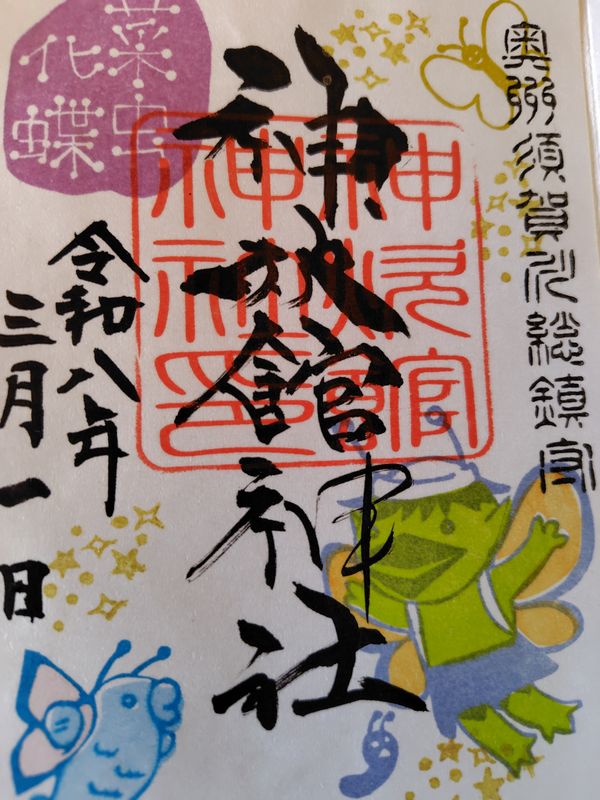 奥州須賀川総鎮守
神炊館神社
神炊館
神社印
令和八年
三月一日
菜虫
化蝶